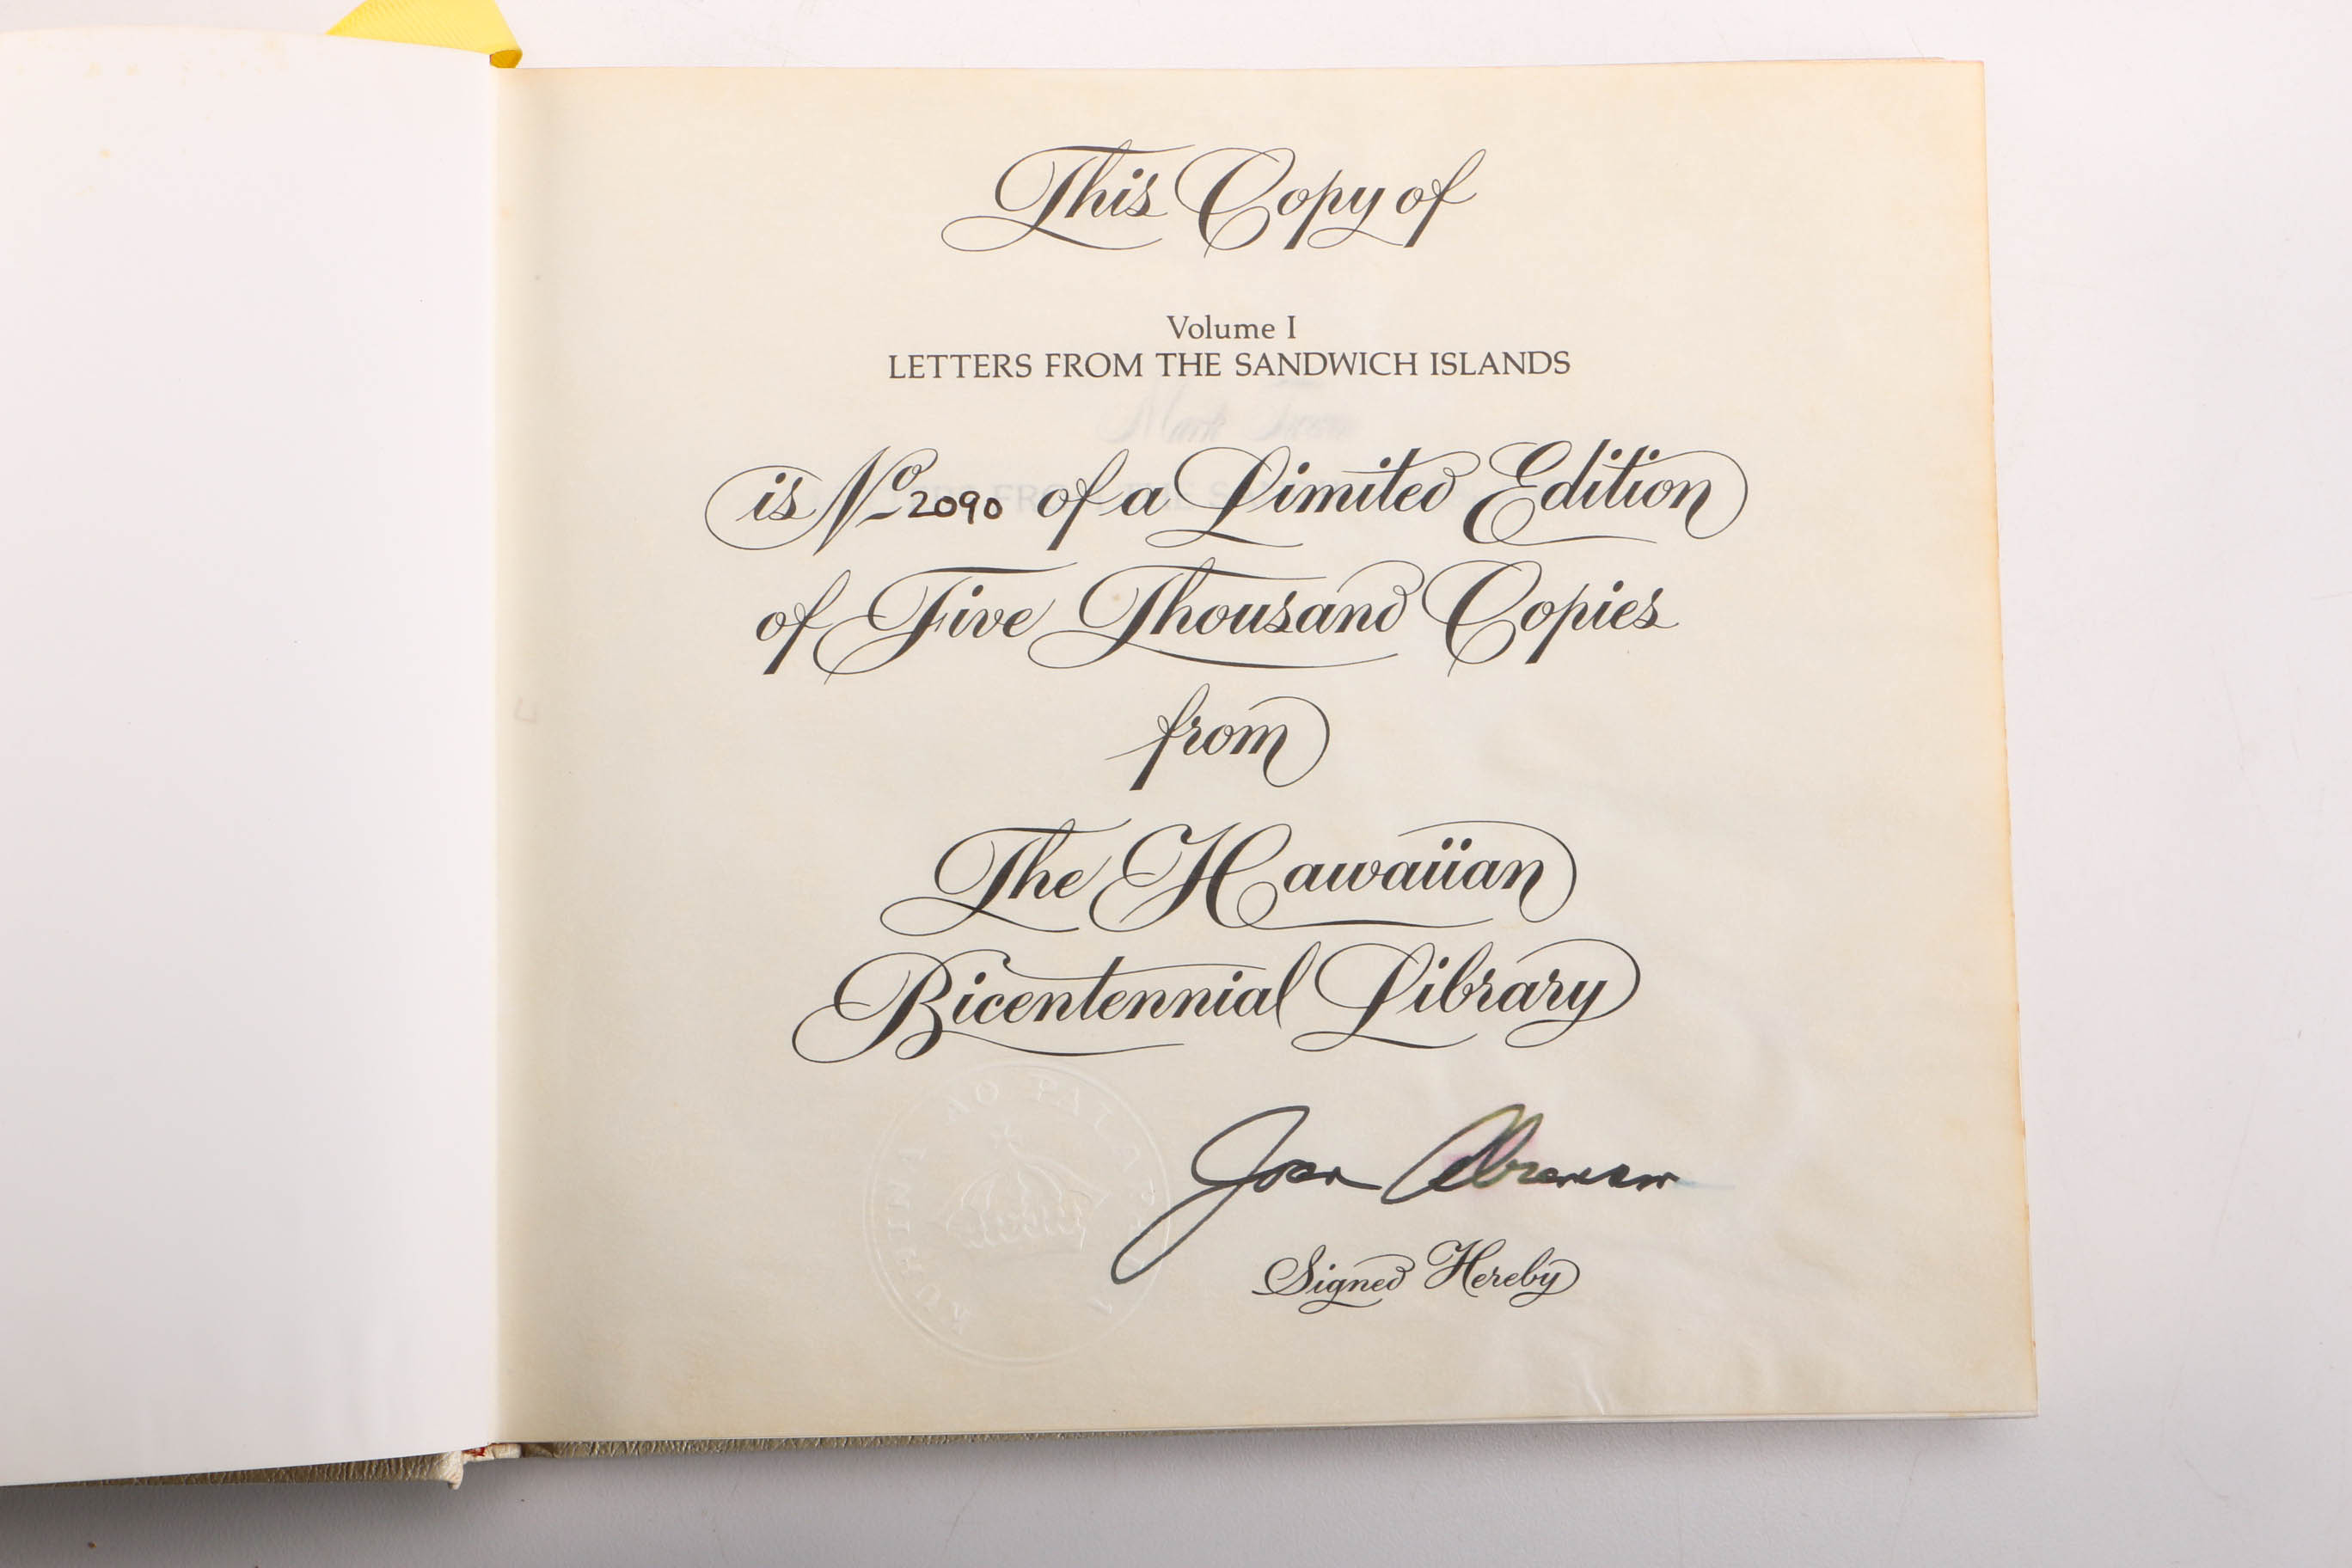 This Copy of
Volume I
LETTERS FROM THE SANDWICH ISLANDS
Mark Twain
is No 2090 of a Limited Edition
of Five Thousand Copies
from
The Hawaiian
Bicentennial Library
Joan Abramson
Signed Hereby